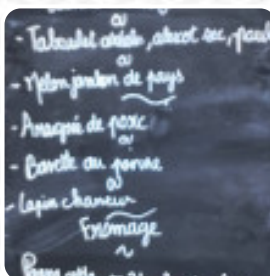 ou
- Taboulet abricot sec,
ou
- Melon jambon de pays
- Araignée de porc
ou
- Bavette au poivre
ou
- Lapin chasseur
Fromage